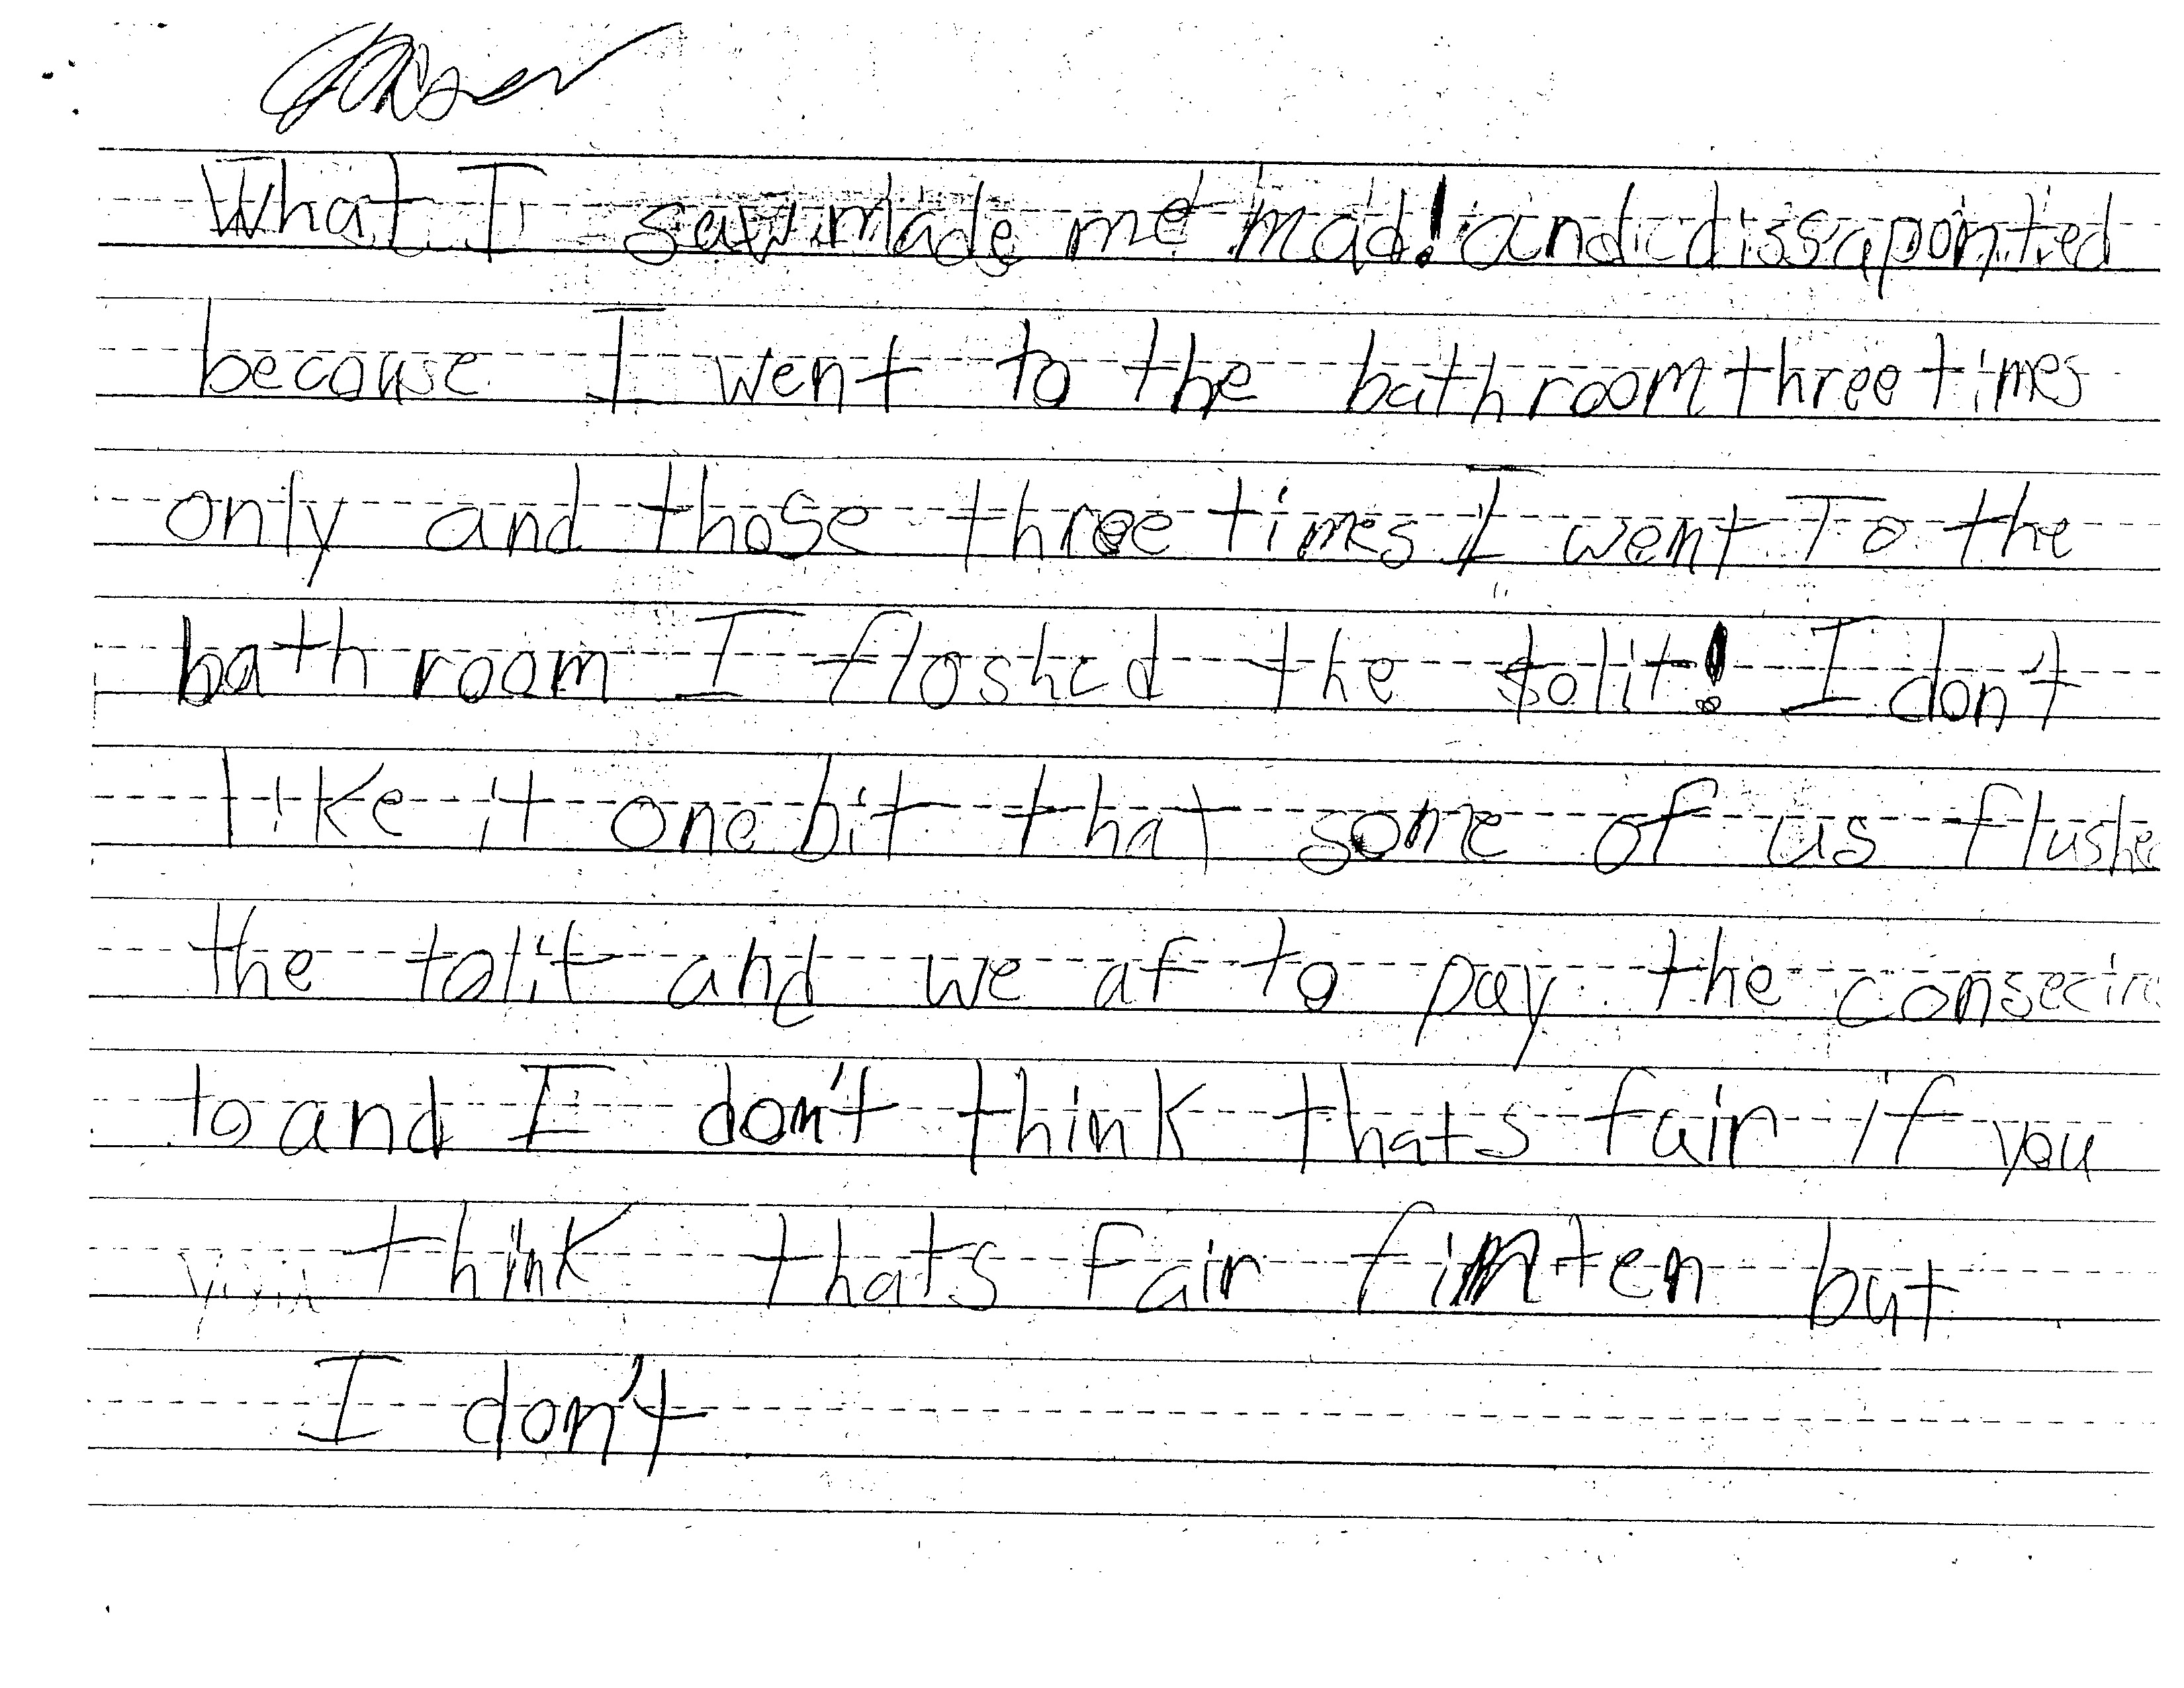 What I saw made me mad! and dissaponted
because I went to the bathroom three times
only and those three times I went To the
bathroom I floshed the tolit! I don't
like it one bit that some of us flushe
the tolit and we af to pay the
to and I don't think thats fair if you
think thats fair finten but
I don't